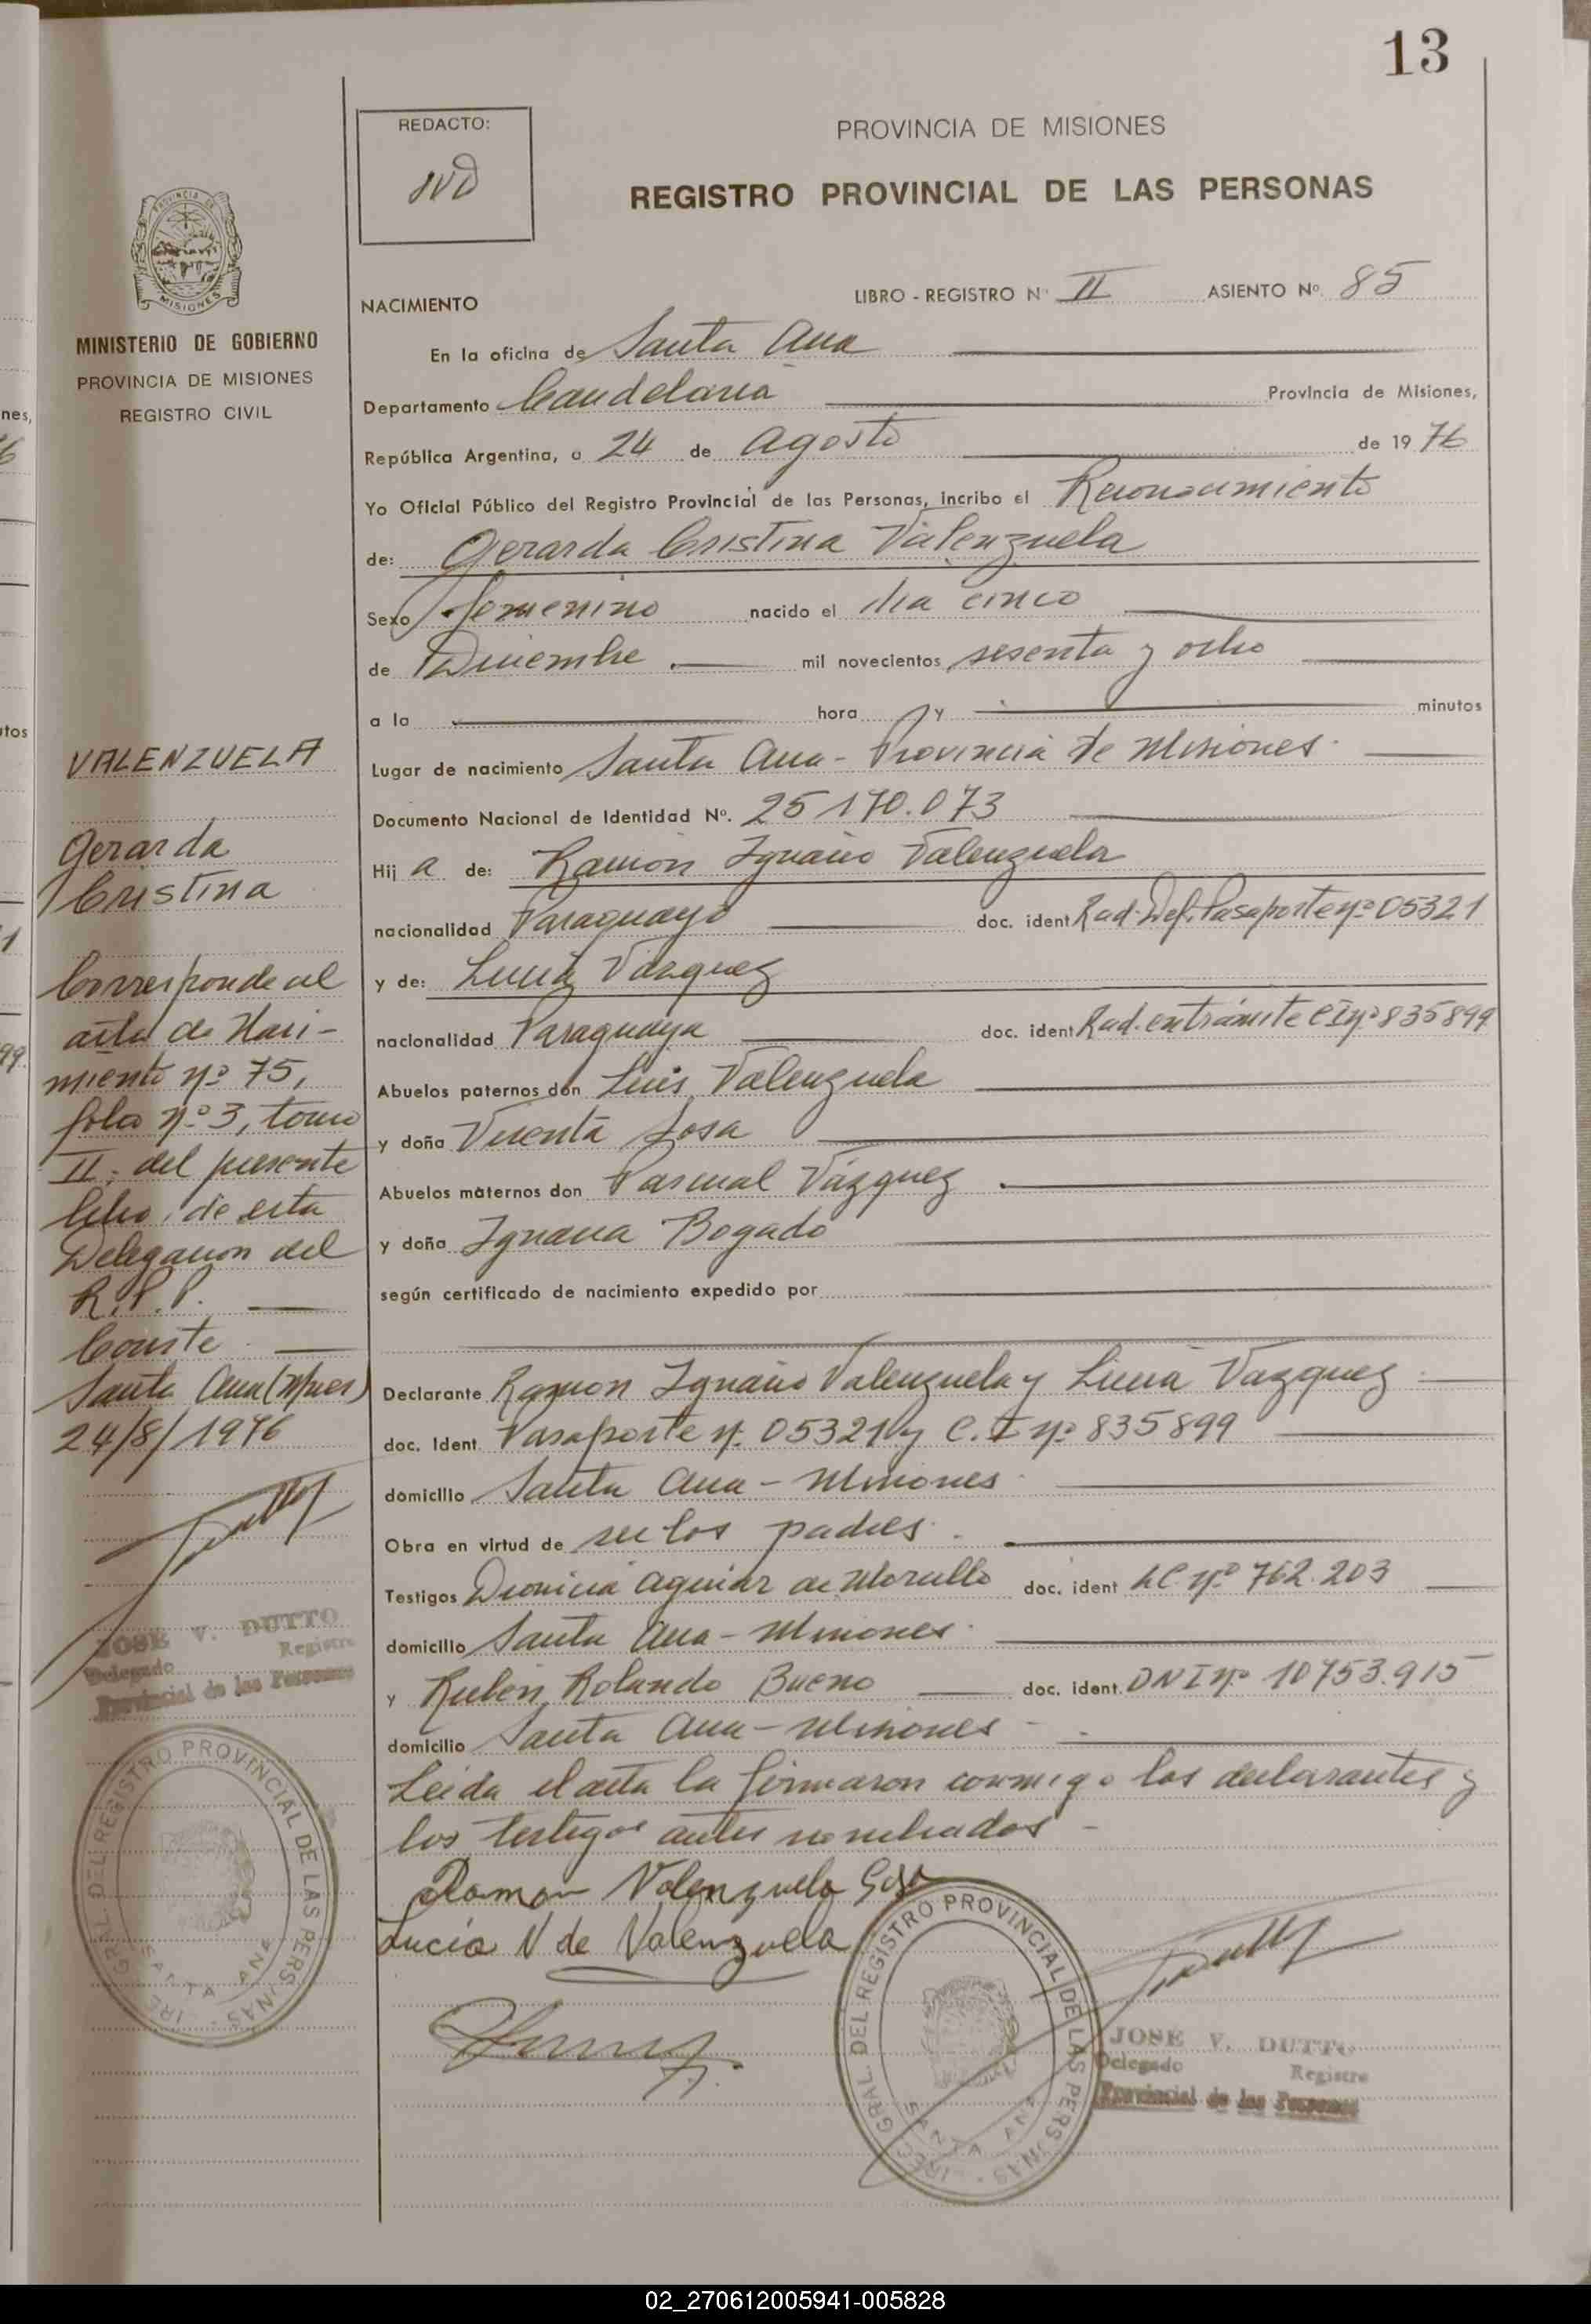 13
REDACTO:
JVD
PROVINCIA DE MISIONES
REGISTRO PROVINCIAL DE LAS PERSONAS
PROVINCIA DE
MISIONES
MINISTERIO DE GOBIERNO
PROVINCIA DE MISIONES
REGISTRO CIVIL
NACIMIENTO
LIBRO - REGISTRO Nº II ASIENTO Nº. 85
En la oficina de Santa Ana
Departamento Candelaria Provincia de Misiones,
República Argentina, a 24 de Agosto de 1976
Yo Oficial Público del Registro Provincial de las Personas, incribo el Reconocimiento
de: Gerarda Cristina Valenzuela
Sexo femenino nacido el día cinco
de Diciembre mil novecientos sesenta y ocho
a la hora y minutos
Lugar de nacimiento Santa Ana - Provincia de Misiones.
Documento Nacional de Identidad Nº. 25.170.073
Hij a de: Ramón Ignacio Valenzuela
nacionalidad Paraguayo doc. ident Rad. Def. Pasaporte nº 05321
y de: Lucía Vázquez
nacionalidad Paraguaya doc. ident Rad. en trámite C I nº 835899
Abuelos paternos don Luis Valenzuela
y doña Vicenta Sosa
Abuelos maternos don Pascual Vázquez
y doña Ignacia Bogado
según certificado de nacimiento expedido por
Declarante Ramón Ignacio Valenzuela y Lucía Vazquez
doc. Ident. Pasaporte nº 05321 y C. I nº 835899
domicilio Santa Ana - Misiones
Obra en virtud de ser los padres.
Testigos Dionicia Aguiar de Morello doc. ident LC nº 762.203
domicilio Santa Ana - Misiones.
y Rubén Rolando Bueno doc. ident. DNI nº 10753.915
domicilio Santa Ana - Misiones
Leída el acta la firmaron conmigo los declarantes y
los testigos antes nombrados -
Ramon Valenzuela Sosa
Lucía V de Valenzuela
VALENZUELA
Gerarda
Cristina
Corresponde al
acta de Naci-
miento nº 75,
folio nº 3, tomo
II, del presente
libro, de esta
Delegación del
R.P.P.
Conste
Santa Ana (Mnes)
24/8/1976
JOSE V. DUTTO
Delegado Registro
Provincial de las Personas
GRAL. DEL REGISTRO PROVINCIAL DE LAS PERSONAS
SANTA ANA
GRAL. DEL REGISTRO PROVINCIAL DE LAS PERSONAS
SANTA ANA
JOSE V. DUTTO
Delegado Registro
Provincial de las Personas
02_270612005941-005828